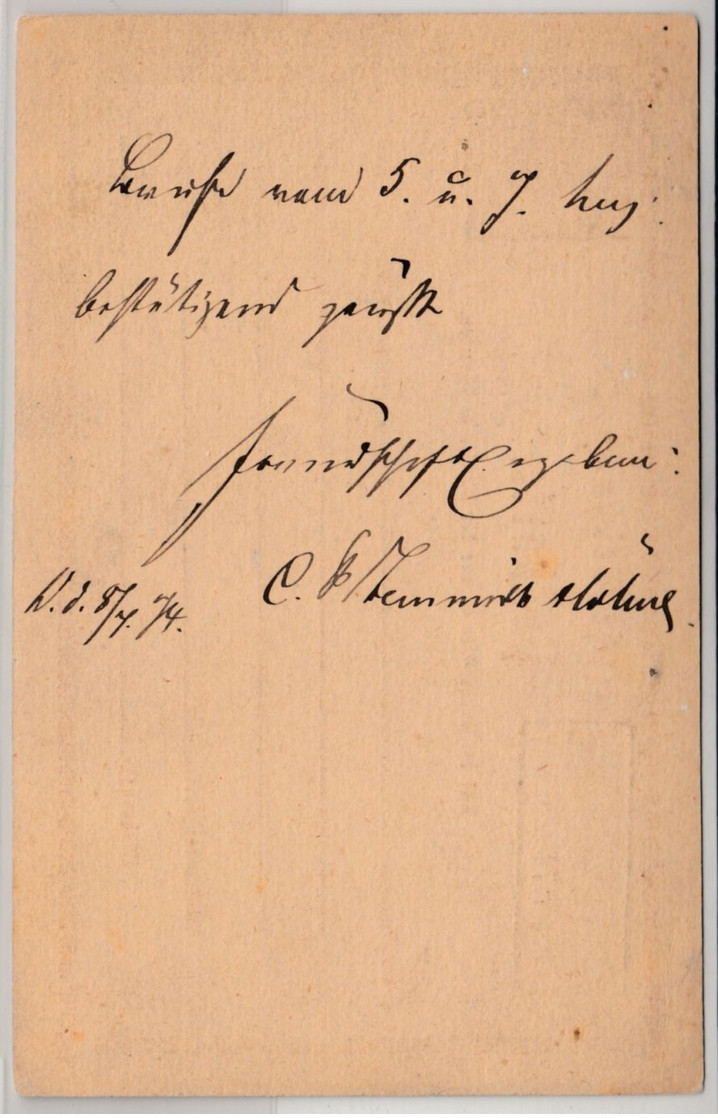 Briefe vom 5. u. 7. huj:
bestätigend grüßt
freundschaftl. ergeben:
C. F.
d. 8/7. 74.